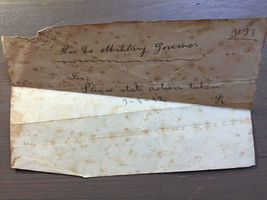 1093
His Ex Military Governor
Sir,
Please state action taken